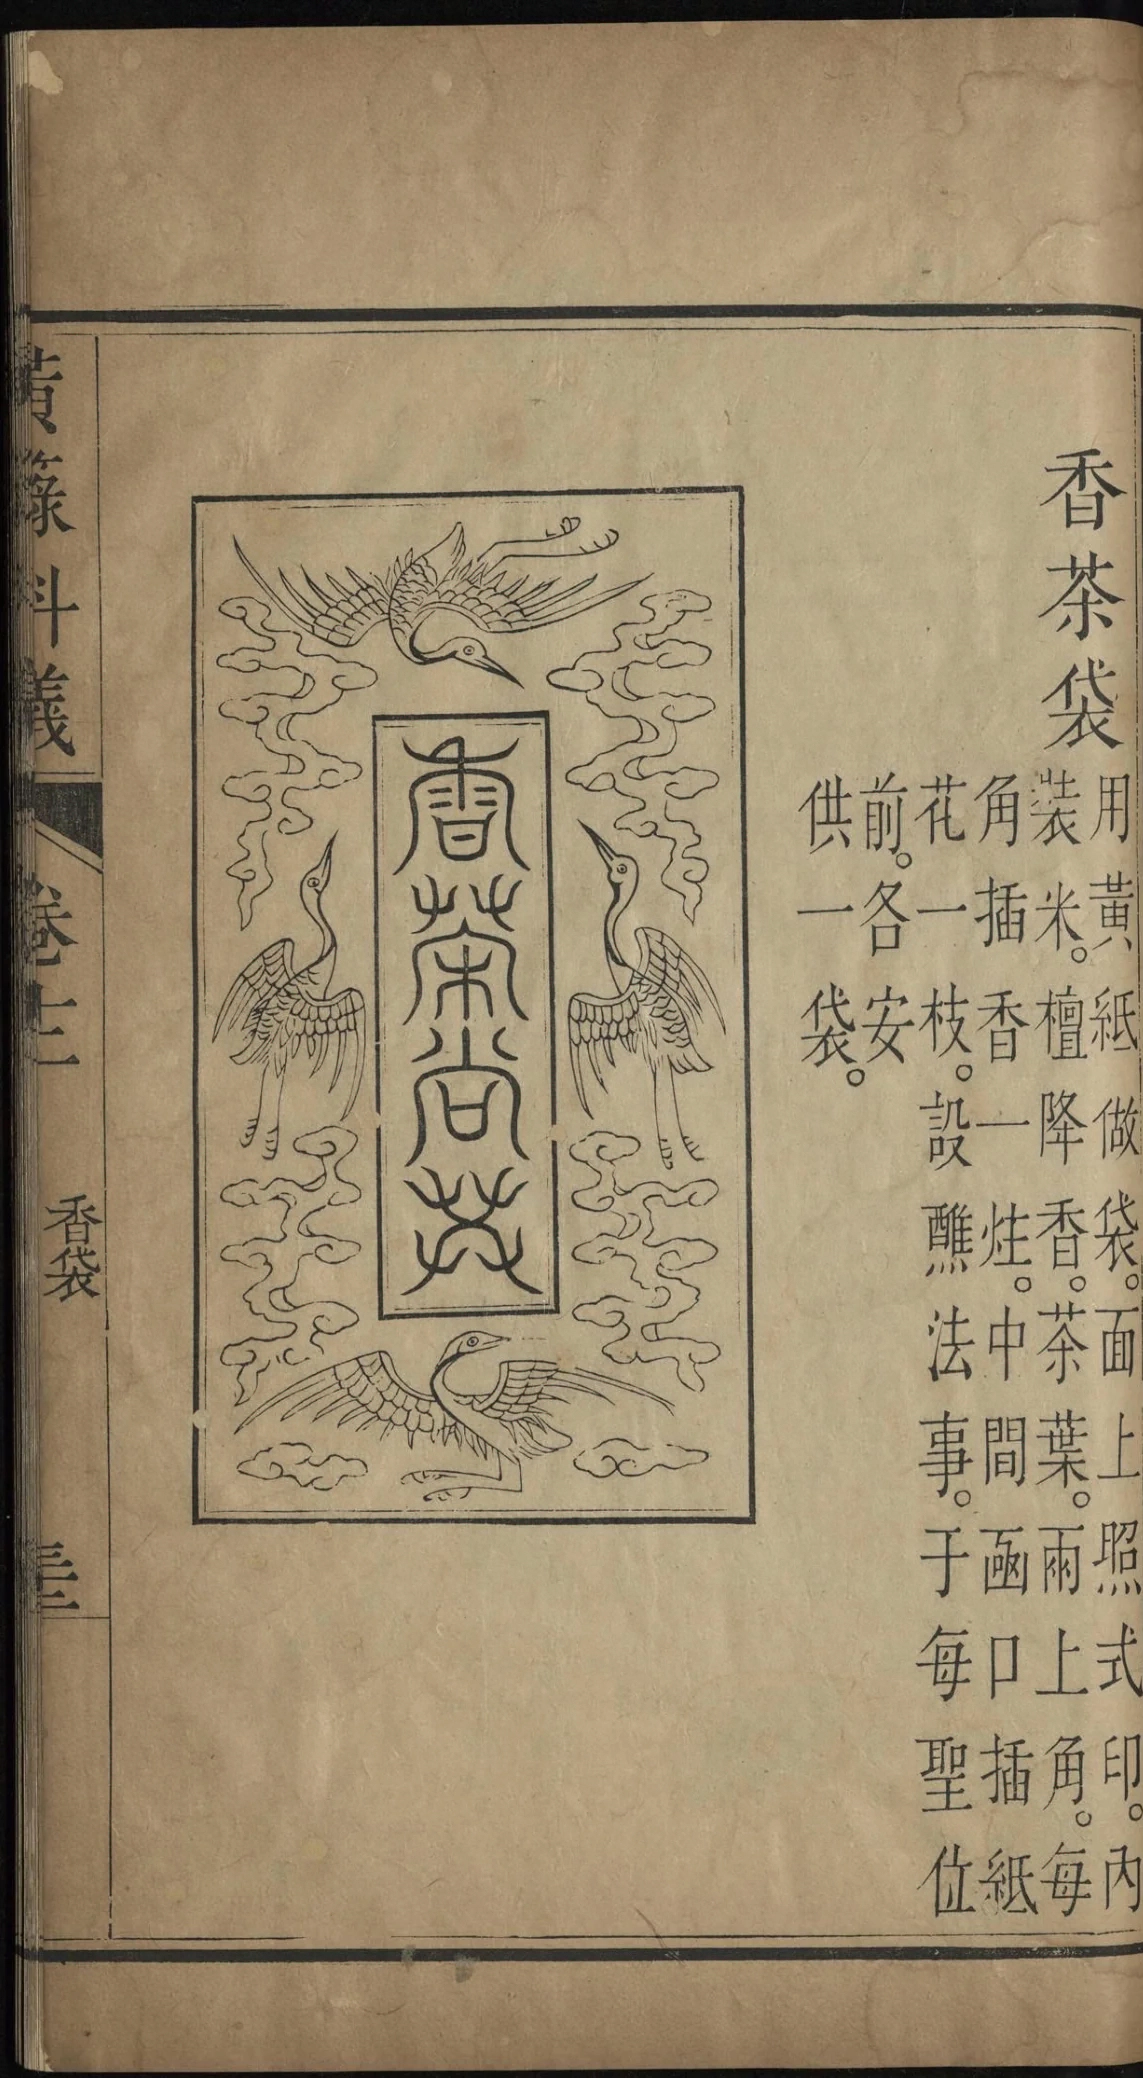 香茶袋
用黃紙做袋。面上照式印。內
裝米。檀降香。茶葉。兩上角。每
角插香一炷。中間凾口插紙
花一枝。設醮法事。于每聖位
前。各安
供一袋。
香茶尚
黃籙科儀
卷十二
香袋